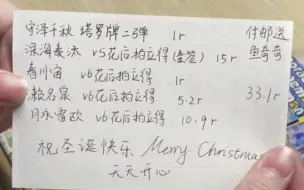 守泽千秋 塔罗牌二弹 1r 付邮送
深海奏汰 v5花后拍立得(金签) 15r 鱼奇奇
春川宙 v6花后拍立得 1r
濑名泉 v6花后拍立得 5.2r 33.1r
月永雷欧 v6花后拍立得 10.9r
祝圣诞快乐 Merry Christmas
天天开心